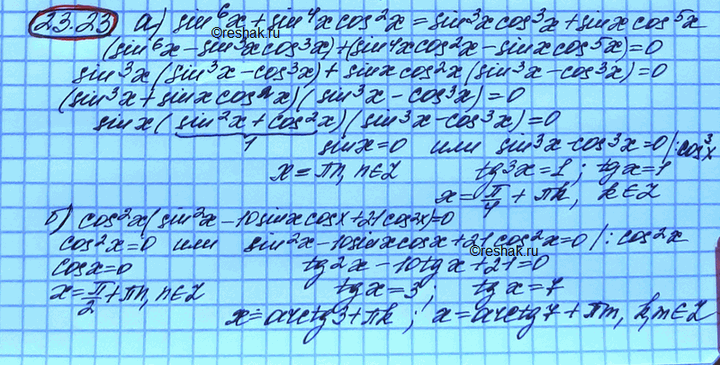 23.23 а) sin⁶x + sin⁴x cos²x = sin³x cos³x + sinx cos⁵x
(sin⁶x - sin³x cos³x) + (sin⁴x cos²x - sinx cos⁵x) = 0
sin³x (sin³x - cos³x) + sinx cos²x (sin³x - cos³x) = 0
(sin³x + sinx cos²x) (sin³x - cos³x) = 0
sinx (sin²x + cos²x) (sin³x - cos³x) = 0
1
sinx = 0 или sin³x - cos³x = 0 |: cos³x
x = πn, n∈Z tg³x = 1; tgx = 1
x = π/4 + πk, k∈Z
б) cos²x (sin²x - 10 sinx cosx + 21 cos²x) = 0
cos²x = 0 или sin²x - 10 sinx cosx + 21 cos²x = 0 |: cos²x
cosx = 0 tg²x - 10 tgx + 21 = 0
x = π/2 + πn, n∈Z tgx = 3; tgx = 7
x = arctg3 + πk; x = arctg7 + πm, k,m∈Z
©reshak.ru
©reshak.ru